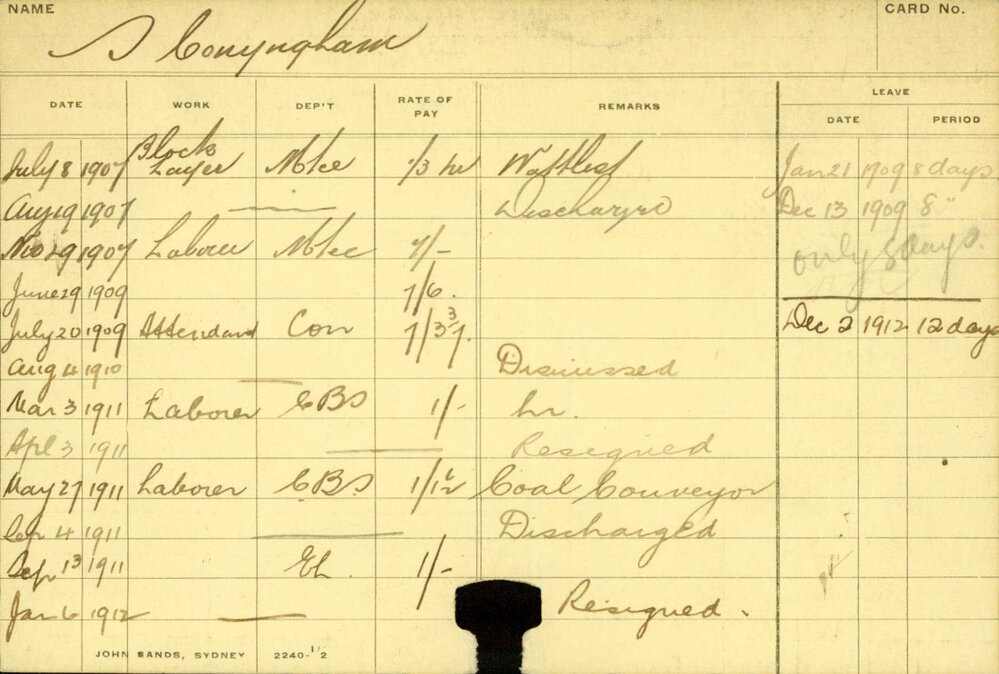 NAME
CARD No.
S Conyngham
LEAVE
DATE WORK DEP'T RATE OF PAY REMARKS DATE PERIOD
Block
July 8 1907 Layer Mtce 1/3 hr Jan 21 1909 8 days
Aug 19 1907 Discharged Dec 13 1909 8 "
Nov 29 1907 Laborer Mtce 7/- only 8 days.
June 29 1909 7/6.
July 20 1909 Attendant Con Dec 2 1912 12 days
Aug 4 1910 Dismissed
Mar 3 1911 Laborer EBS 1/- hr.
Apl 3 1911 Resigned
May 27 1911 Laborer EBS 1/1½ Coal Conveyor
Sep 4 1911 Discharged
Sep 13 1911 EL. 1/-
Jan 6 1912 Resigned.
JOHN SANDS, SYDNEY 2240-1/2